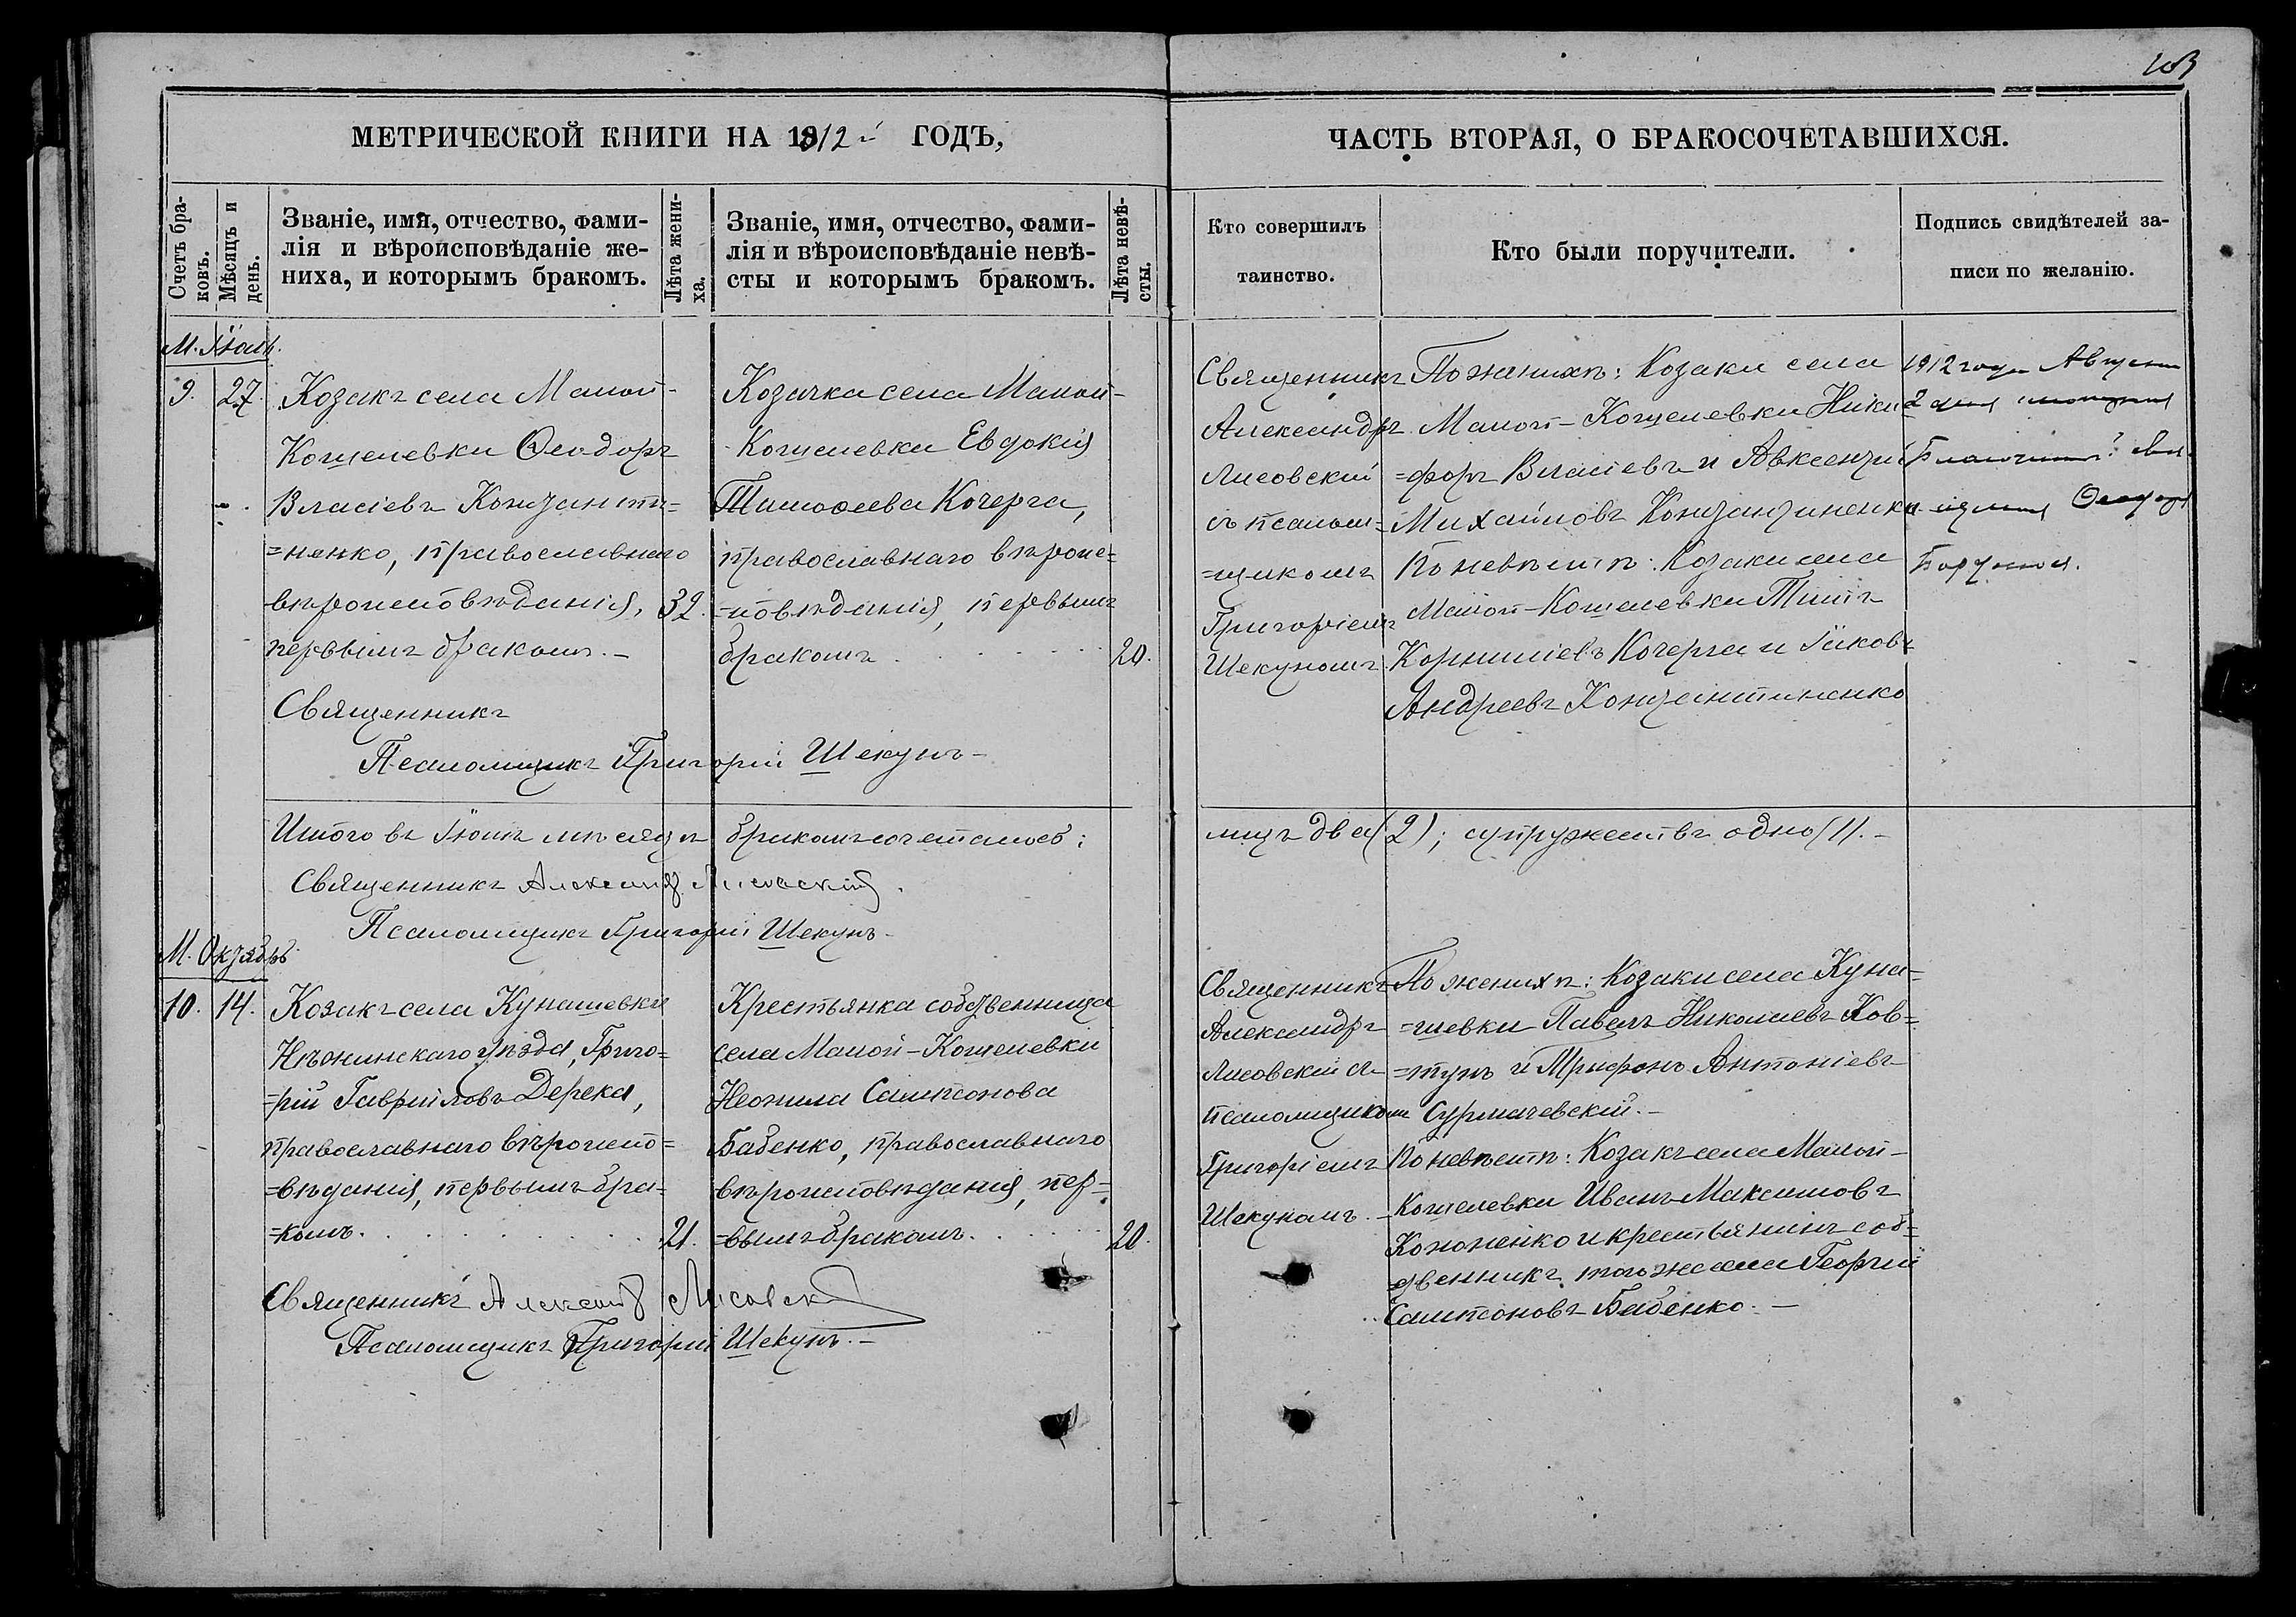 103
МЕТРИЧЕСКОЙ КНИГИ НА 1912й ГОДЪ,
ЧАСТЬ ВТОРАЯ, О БРАКОСОЧЕТАВШИХСЯ.
Счетъ бра-
ковъ.
Мѣсяцъ и
день.
Званіе, имя, отчество, фами-
лія и вѣроисповѣданіе же-
ниха, и которымъ бракомъ.
Лѣта жени-
ха.
Званіе, имя, отчество, фами-
лія и вѣроисповѣданіе невѣ-
сты и которымъ бракомъ.
Лѣта невѣ-
сты.
Кто совершилъ
таинство.
Кто были поручители.
Подпись свидѣтелей за-
писи по желанію.
М. Іюль.
9.
27.
Козакъ села Малой-
Кошелевки Ѳеодоръ
Власіевъ Константи=
=ненко, православнаго
вѣроисповѣданія,
первымъ бракомъ.-
32.
Козачка села Малой-
Кошелевки Евдокія
Тимоѳеева Кочерга,
православнаго вѣроис=
=повѣданія, первымъ
бракомъ
20.
Священникъ
Псаломщикъ Григорій Шекунъ-
Священникъ
Александръ
Лисовскій
съ псалом=
=щикомъ
Григоріемъ
Шекуномъ.
По женихѣ: Козаки села
Малой-Кошелевки Ники=
=форъ Власіевъ и Авксентій
Михайловъ Константиненки
По невѣстѣ: Козаки села
Малой-Кошелевки Титъ
Корниліевъ Кочерга и Іаковъ
Андреевъ Константиненко
1912 года Августа
2 дня
Ѳеодоръ
Итого въ Іюлѣ мѣсяцѣ бракомъ сочеталось:
лицъ два (2); супружествъ одно (1).-
Священникъ Александръ Лисовскій.
Псаломщикъ Григорій Шекунъ-
М. Октябрь.
10.
14.
Козакъ села Кунашевки
Нѣжинскаго уѣзда, Григо=
=рій Гавріиловъ Дерека,
православнаго вѣроиспо=
=вѣданія, первымъ бра=
=комъ.
21.
Крестьянка собственница
села Малой-Кошелевки
Неонила Сампсонова
Бабенко, православнаго
вѣроисповѣданія, пер=
=вымъ бракомъ.
20.
Священникъ Александръ Лисовскій
Псаломщикъ Григорій Шекунъ.-
Священникъ
Александръ
Лисовскій съ
псаломщикомъ
Григоріемъ
Шекуномъ.-
По женихѣ: Козаки села Куна=
=шевки Павелъ Николаевъ Ков=
=тунъ и Трифонъ Антоніевъ
Сурмачевскій.-
По невѣстѣ: Козакъ села Малой-
Кошелевки Иванъ Максимовъ
Кононенко и крестьянинъ соб=
=ственникъ того же села Георгій
Сампсоновъ Бабенко.-